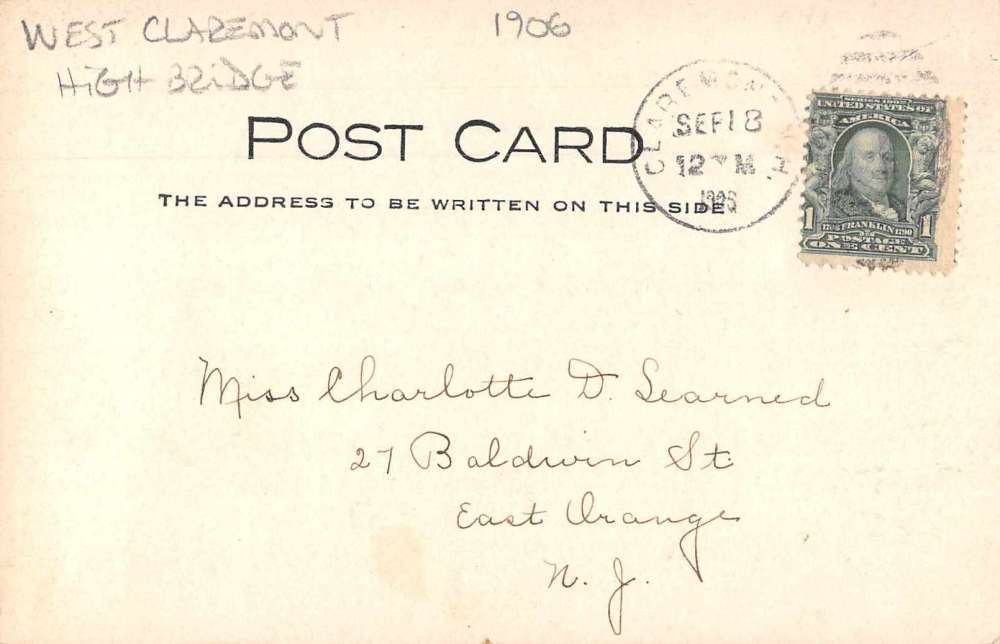 WEST CLAREMONT 1906
HIGH BRIDGE
POST CARD
THE ADDRESS TO BE WRITTEN ON THIS SIDE
CLAREMONT N.H.
SEP 18
12 M
SERIES 1902
UNITED STATES OF
AMERICA
1 1
1706 FRANKLIN 1790
POSTAGE
ONE CENT
Miss Charlotte D. Learned
27 Baldwin St.
East Orange
N. J.